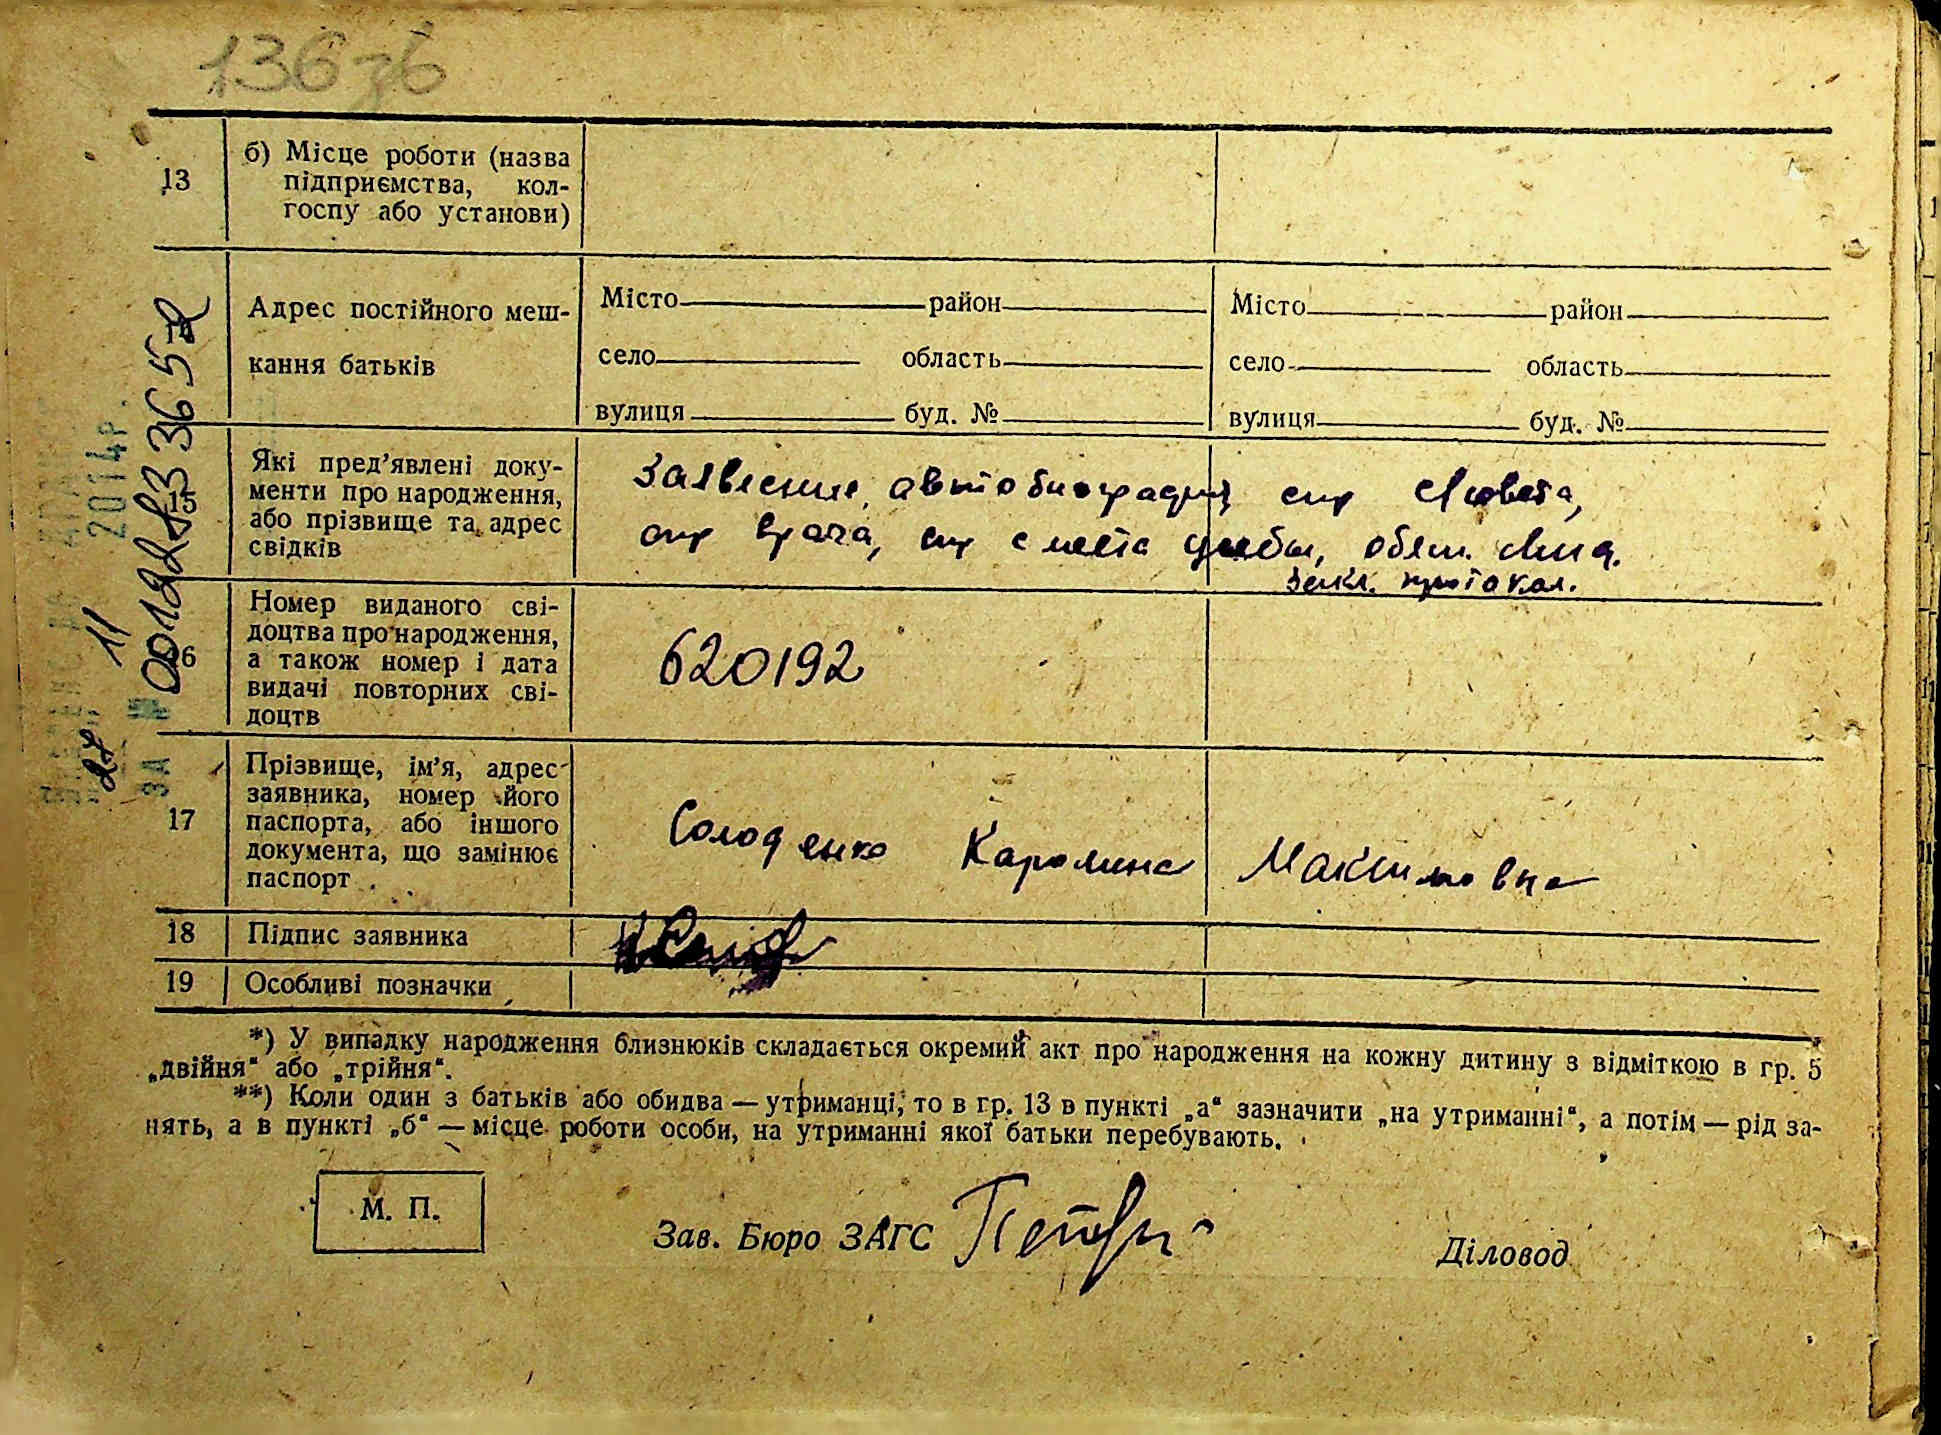 136 зб
13
б) Місце роботи (назва
підприємства, кол-
госпу або установи)
Адрес постійного меш-
кання батьків
Місто район
село область
вулиця буд. №
Місто район
село область
вулиця буд. №
15
Які пред'явлені доку-
менти про народження,
або прізвище та адрес
свідків
Заявление, автобиография, спр Совета,
спр врача, спр с места учебы,
протокол.
Номер виданого сві-
доцтва про народження,
а також номер і дата
видачі повторних сві-
доцтв
620192
17
Прізвище, ім'я, адрес
заявника, номер його
паспорта, або іншого
документа, що замінює
паспорт
Солоденко Каролина Максимовна
18
Підпис заявника
19
Особливі позначки
*) У випадку народження близнюків складається окремий акт про народження на кожну дитину з відміткою в гр. 5
„двійня“ або „трійня“.
**) Коли один з батьків або обидва — утриманці, то в гр. 13 в пункті „а“ зазначити „на утриманні“, а потім — рід за-
нять, а в пункті „б“ — місце роботи особи, на утриманні якої батьки перебувають.
М. П.
Зав. Бюро ЗАГС
Діловод
2014р.
27 11
ЗА №